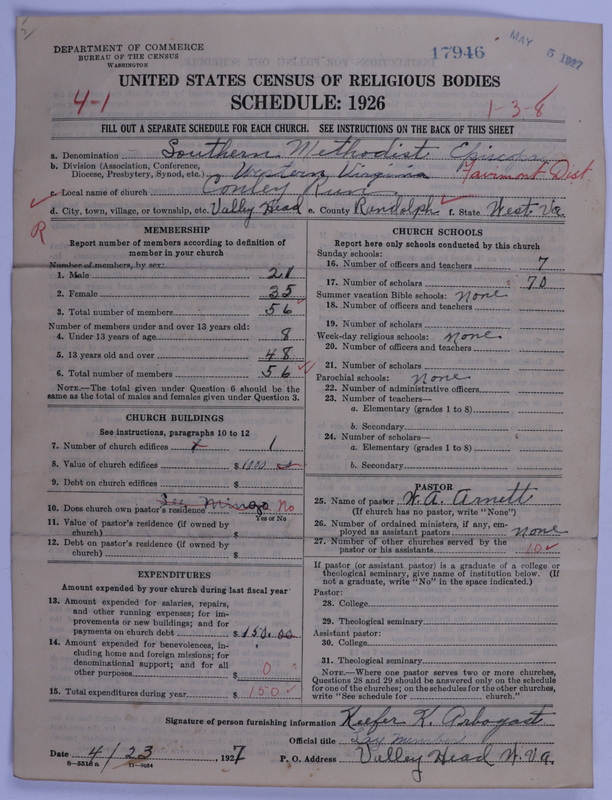 DEPARTMENT OF COMMERCE
BUREAU OF THE CENSUS
WASHINGTON
17946
MAY 5 1927
UNITED STATES CENSUS OF RELIGIOUS BODIES
SCHEDULE: 1926
4-1
1-3-8
FILL OUT A SEPARATE SCHEDULE FOR EACH CHURCH. SEE INSTRUCTIONS ON THE BACK OF THIS SHEET
a. Denomination Southern Methodist Episcopal
b. Division (Association, Conference, Diocese, Presbytery, Synod, etc.) Western Virginia Fairmont Dist.
c. Local name of church Conley Run
d. City, town, village, or township, etc. Vally Head e. County Randolph f. State West. Va
R
MEMBERSHIP
Report number of members according to definition of
member in your church
Number of members, by sex:
1. Male 21
2. Female 35
3. Total number of members 56
Number of members under and over 13 years old:
4. Under 13 years of age 8
5. 13 years old and over 48
6. Total number of members 56
NOTE.—The total given under Question 6 should be
same as the total of males and females given under Question 3.
CHURCH BUILDINGS
See instructions, paragraphs 10 to 12
7. Number of church edifices 1
8. Value of church edifices $ 1000
9. Debt on church edifices $
See Mingo No
10. Does church own pastor's residence
Yes or No
11. Value of pastor's residence (if owned by
church) $
12. Debt on pastor's residence (if owned by
church) $
EXPENDITURES
Amount expended by your church during last fiscal year
13. Amount expended for salaries, repairs,
and other running expenses; for im-
provements or new buildings; and for
payments on church debt $ 150.00
14. Amount expended for benevolences, in-
cluding home and foreign missions; for
denominational support; and for all
other purposes $ 0
15. Total expenditures during year $ 150
CHURCH SCHOOLS
Report here only schools conducted by this church
Sunday schools:
16. Number of officers and teachers 7
17. Number of scholars 70
Summer vacation Bible schools: None
18. Number of officers and teachers
19. Number of scholars
Week-day religious schools: None
20. Number of officers and teachers
21. Number of scholars
Parochial schools: None
22. Number of administrative officers
23. Number of teachers—
a. Elementary (grades 1 to 8)
b. Secondary
24. Number of scholars—
a. Elementary (grades 1 to 8)
b. Secondary
PASTOR
25. Name of pastor W. A. Arnett
(If church has no pastor, write "None")
26. Number of ordained ministers, if any, em-
ployed as assistant pastors none
27. Number of other churches served by the
pastor or his assistants 10
If pastor (or assistant pastor) is a graduate of a college or
theological seminary, give name of institution below. (If
not a graduate, write "No" in the space indicated.)
Pastor:
28. College
29. Theological seminary
Assistant pastor:
30. College
31. Theological seminary
NOTE.—Where one pastor serves two or more churches,
Questions 28 and 29 should be answered only on the schedule
for one of the churches; on the schedules for the other churches,
write "See schedule for church."
Signature of person furnishing information Keefer K. Arbogast
Official title Lay member
Date 4/23, 1927 P. O. Address Valley Head W. Va.
8—5516a 11—9054